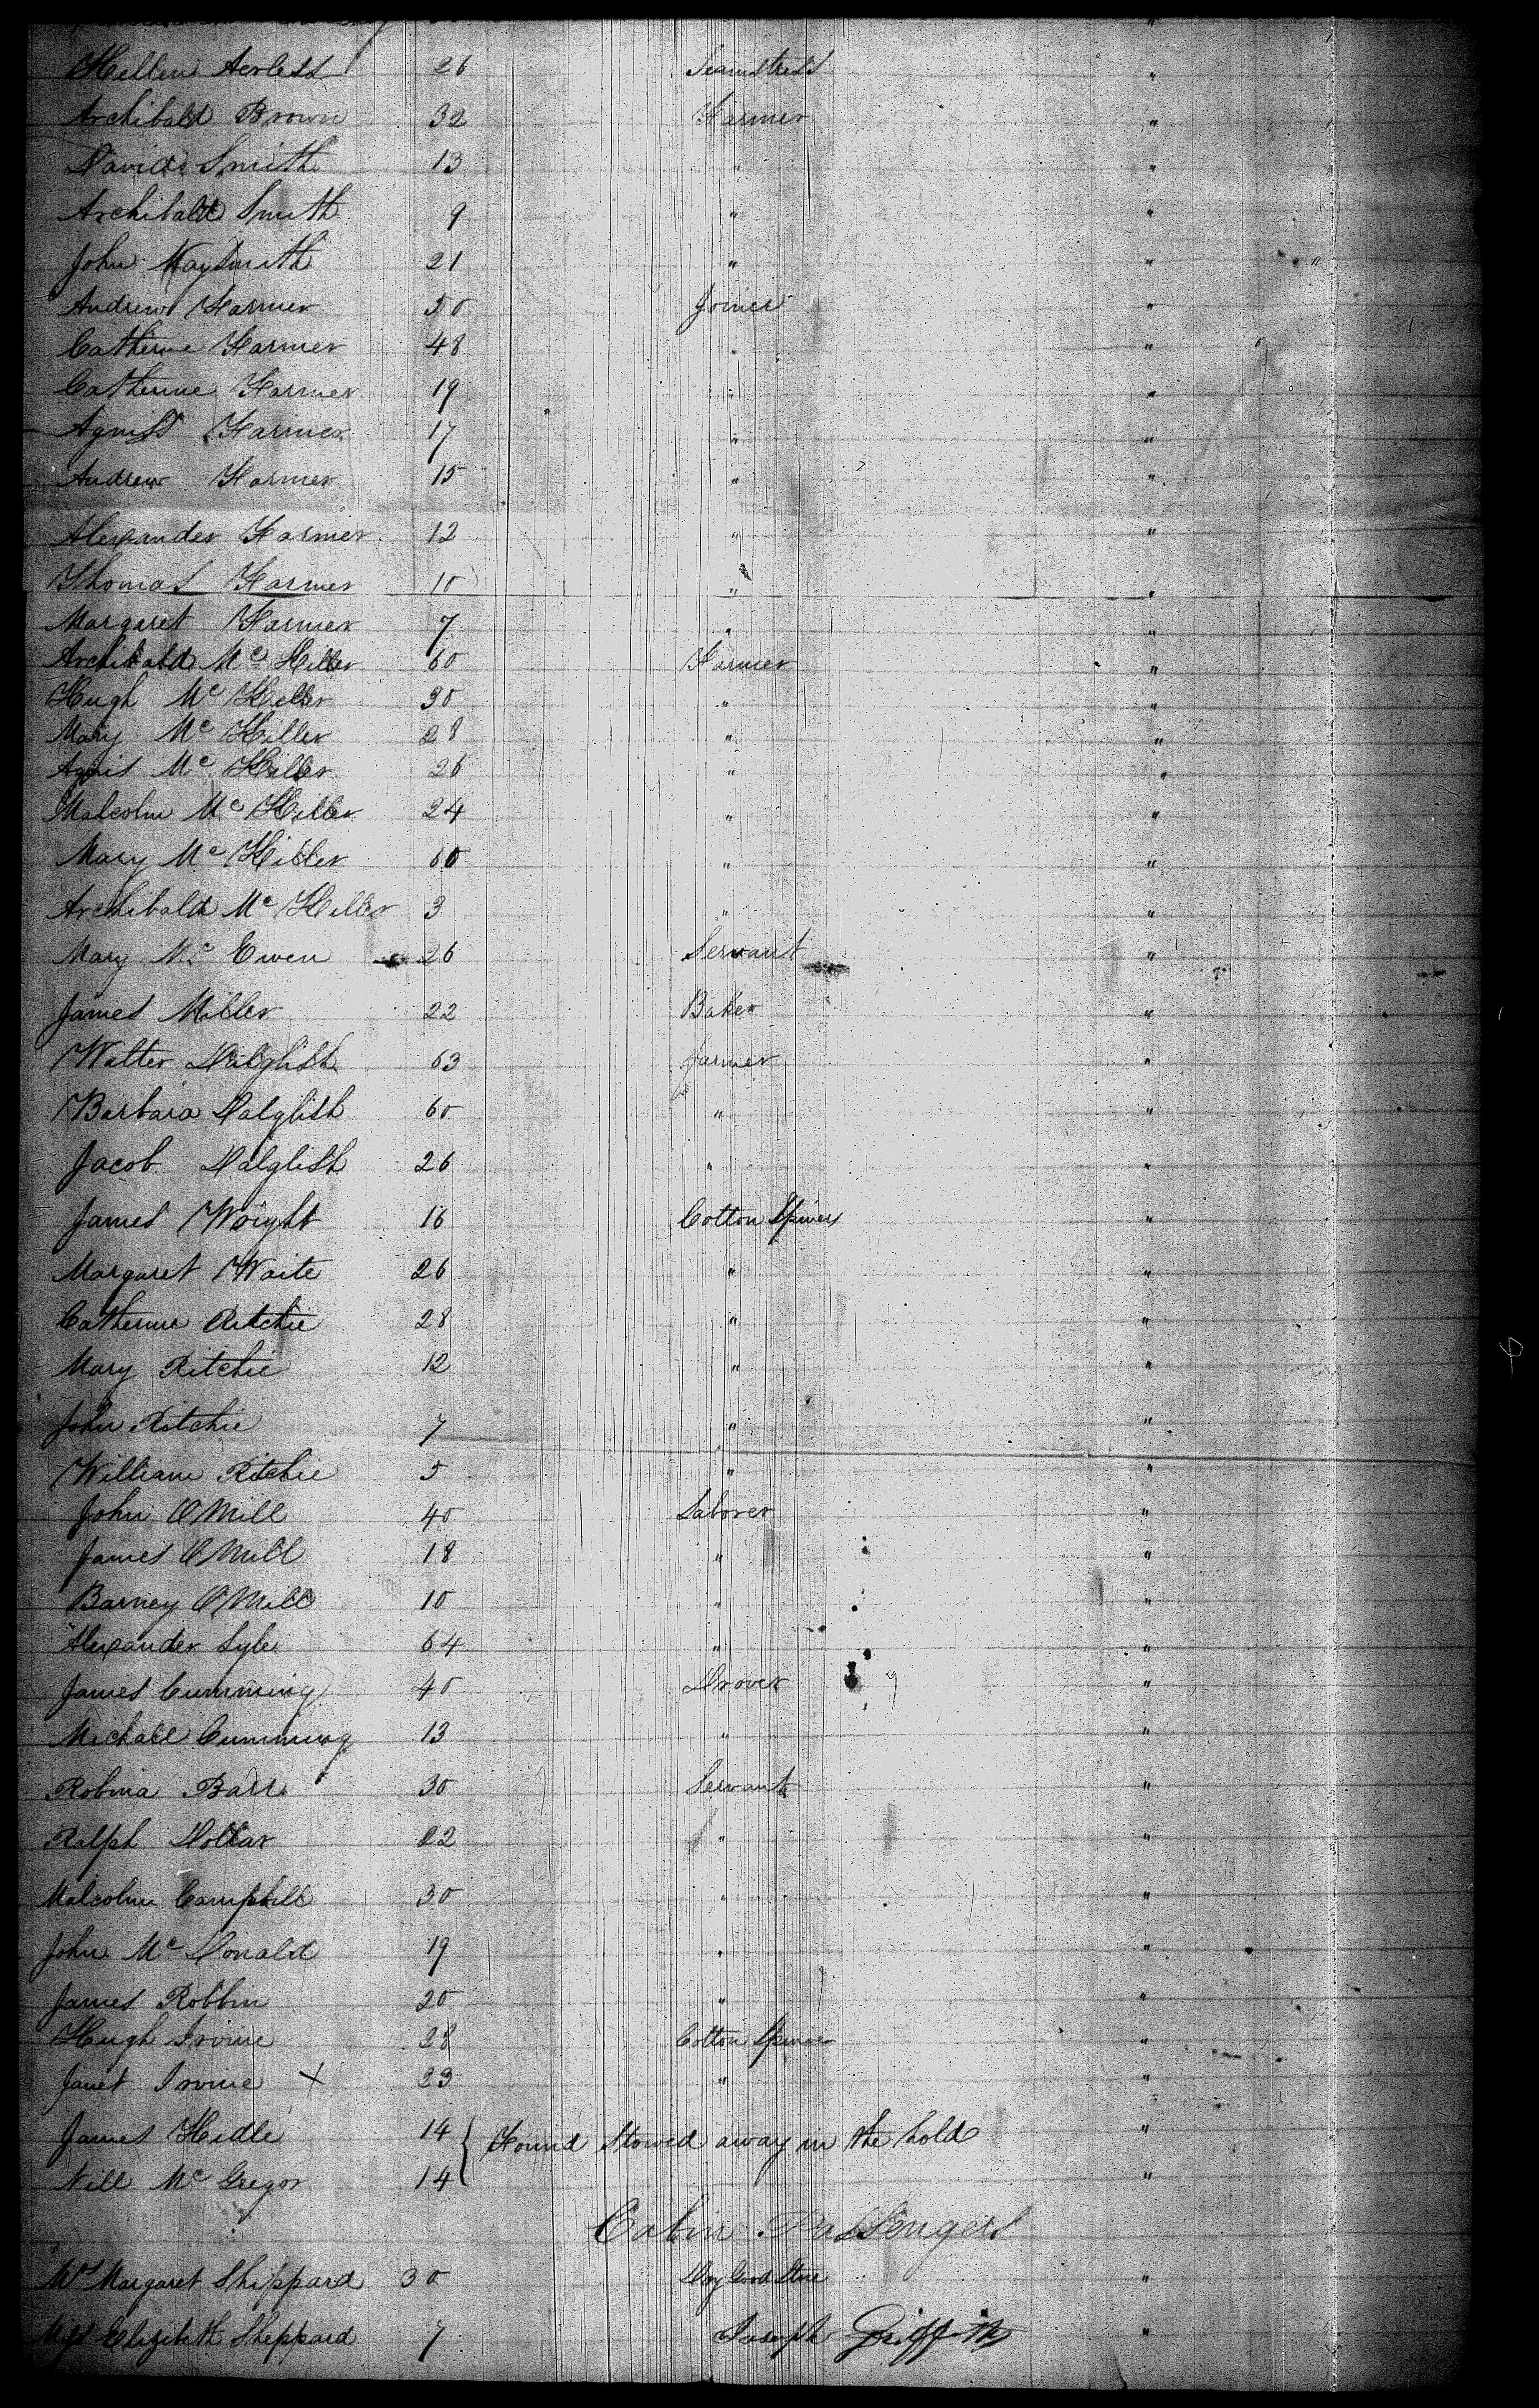 Hellen 26 Seamstress "
Archibald Brown 32 Farmer "
David Smith 13 " "
Archibald Smith 9 " "
John NaySmith 21 " " "
Andrew Farmer 50 Joiner "
Catherine Farmer 48 " "
Catherine Farmer 19 " "
Agniss Farmer 17 " "
Andrew Farmer 15 " "
Alexander Farmer 12 " "
Thomas Farmer 10 " "
Margaret Farmer 7 " "
Archibald Mc Killer 60 Farmer "
Hugh Mc Keller 30 " "
Mary Mc Killer 28 " "
Agnis Mc Killer 26 " "
Malcolm Mc Killer 24 " "
Mary Mc Killer 60 " "
Archibald Mc Killer 3 " "
Mary Mc Ewen 26 Servant "
James Miller 22 Baker "
Walter Dalglish 63 farmer "
Barbara Dalglish 60 " "
Jacob Dalglish 26 " "
James Wright 16 Cotton Spiners "
Margaret Waite 26 " "
Catherine Ritchie 28 " "
Mary Ritchie 12 " "
John Ritchie 7 " "
William Ritchie 5 " "
John O Mill 40 Laborer "
James O Mill 18 " "
Barney O Mill 10 " "
Alexander Lyle 64 " "
James Cumming 40 Drover "
Michall Cumming 13 " "
Robina Barr 30 Servant "
Ralph Dollar 22 " "
Malcolm Campbill 30 " "
John Mc Donald 19 " "
James Robbin 20 " "
Hugh Irvine 28 Cotton Spiner "
Janet Irvine X 23 " "
James Hidle 14 { Found Stowed away in the hold "
Nill Mc Gregor 14 "
Cabin Passengers
Mrs Margaret Shippard 30 Dry Good Store "
Miss Elizibeth Sheppard 7 "
Joseph Griffith